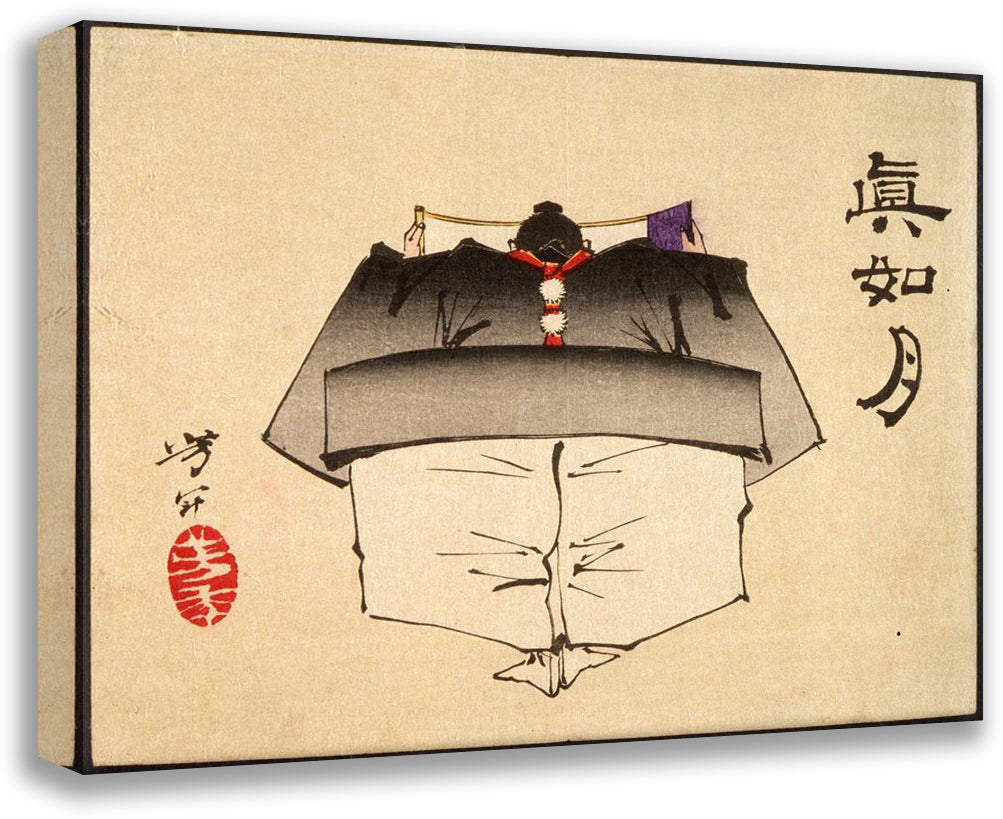 眞如月
芳年